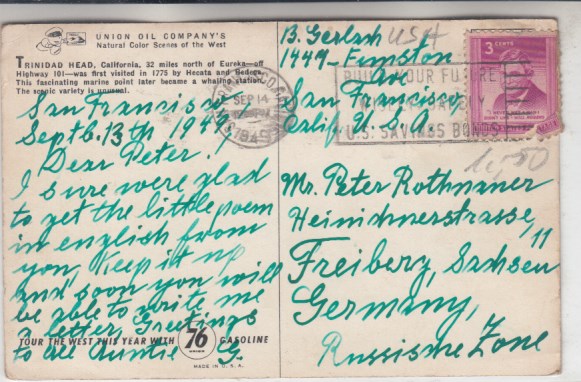 UNION OIL COMPANY'S
Natural Color Scenes of the West
TRINIDAD HEAD, California, 32 miles north of Eureka—off
Highway 101—was first visited in 1775 by Hecata and Bodega.
This fascinating marine point later became a whaling station.
The scenic variety is unusual.
San Francisco
Septb. 13th 1949
Dear Peter!
I sure were glad
to get the little poem
in english from
you, Keep it up
and soon you will
be able to write me
a letter, Greetings
to all Auntie G.
TOUR THE WEST THIS YEAR WITH 76 GASOLINE
UNION
MADE IN U.S.A.
B. Gerlach USA
1449- Funston
Ave
San Francisco,
Calif U.S.A.
SEP 14
1949
BUILD YOUR FUTURE
U.S. SAVINGS BONDS
3 CENTS
1,50
Mr. Peter Rothmaner
11
Freiberg, Sachsen
Germany,
Russisme Zone